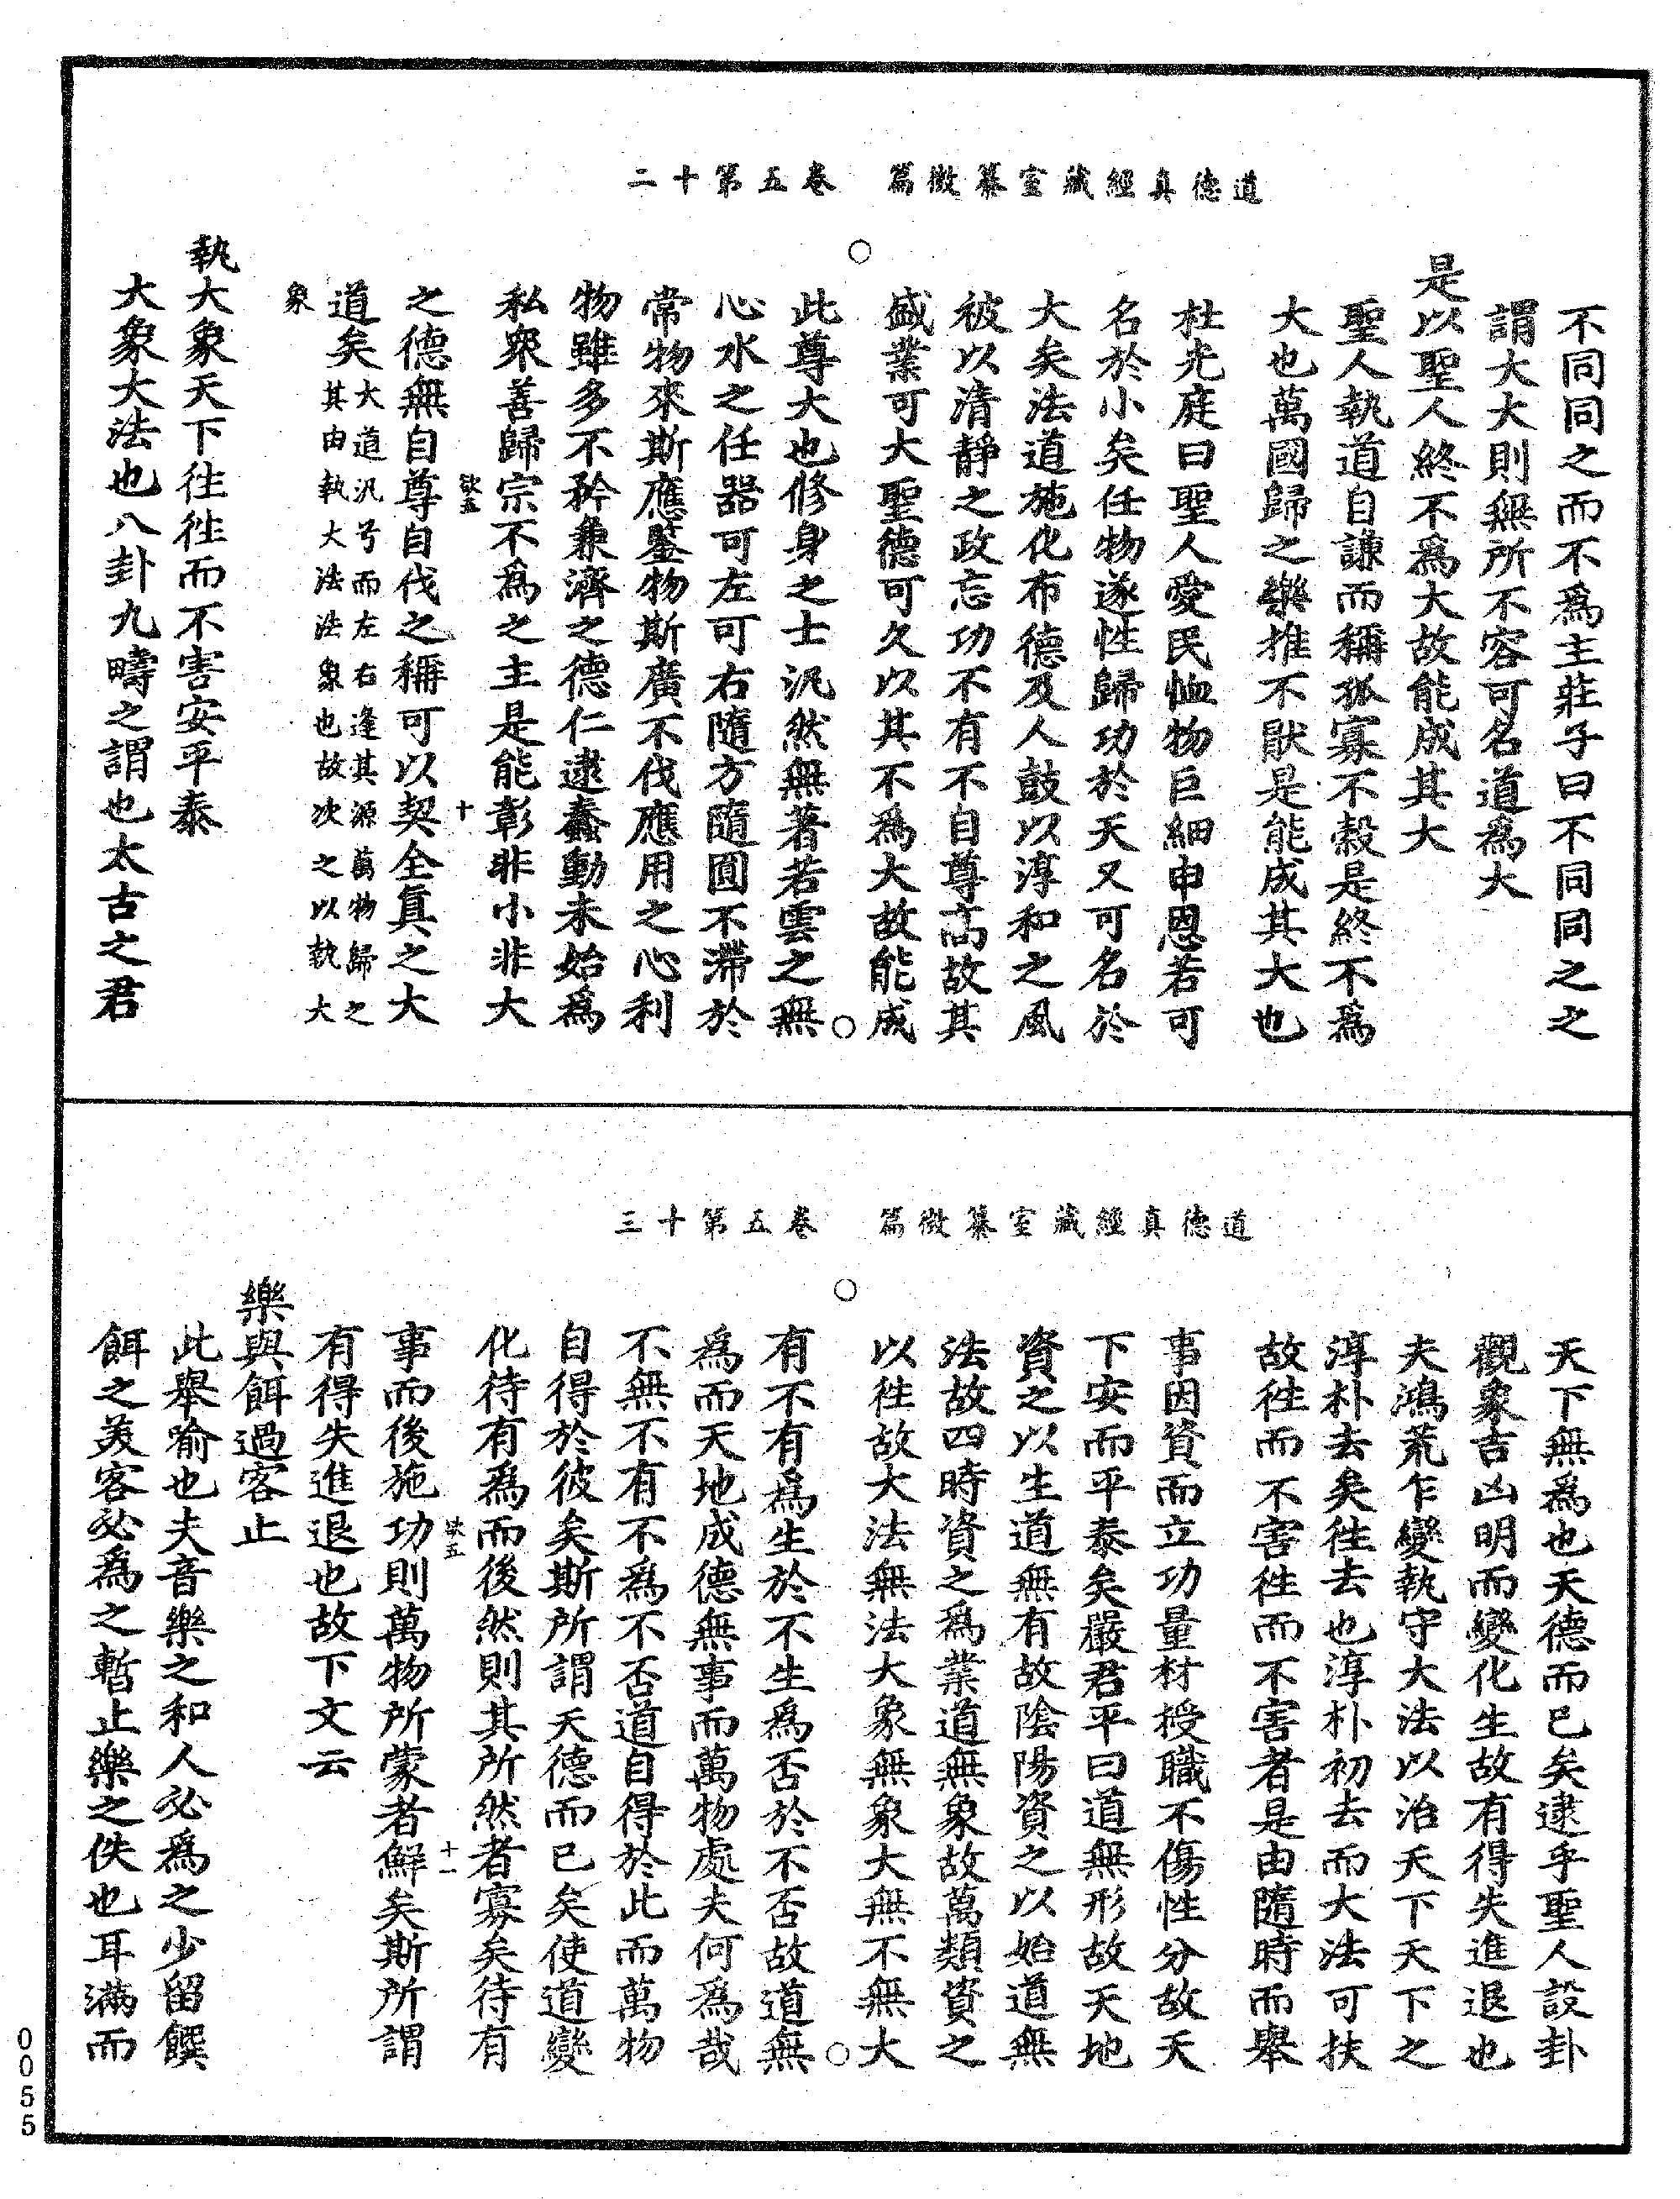 道德真經藏室纂微篇　卷五第十二
不同同之而不爲主莊子曰不同同之之
謂大大則無所不容可名道爲大
是以聖人終不爲大故能成其大
聖人執道自謙而稱孤寡不穀是終不爲
大也萬國歸之樂推不猒是能成其大也
杜光庭曰聖人愛民恤物巨細申恩若可
名於小矣任物遂性歸功於天又可名於
大矣法道施化布德及人鼓以淳和之風
被以清靜之政忘功不有不自尊高故其
盛業可大聖德可久以其不爲大故能成
此尊大也修身之士汎然無著若雲之無
心水之任器可左可右隨方隨圓不滯於
常物來斯應鑒物斯廣不伐應用之心利
物雖多不矜兼濟之德仁逮蠢動未始爲
私衆善歸宗不爲之主是能彰非小非大
欲五　十
之德無自尊自伐之稱可以契全真之大
道矣大道汎兮而左右逢其源萬物歸之
其由執大法法象也故次之以執大
象
執大象天下往往而不害安平泰
大象大法也八卦九疇之謂也太古之君
道德真經藏室纂微篇　卷五第十三
天下無爲也天德而已矣逮乎聖人設卦
觀象吉凶明而變化生故有得失進退也
夫鴻荒乍變執守大法以治天下天下之
淳朴去矣往去也淳朴初去而大法可扶
故往而不害往而不害者是由隨時而舉
事因資而立功量材授職不傷性分故天
下安而平泰矣嚴君平曰道無形故天地
資之以生道無有故陰陽資之以始道無
法故四時資之爲業道無象故萬類資之
以往故大法無法大象無象大無不無大
有不有爲生於不生爲否於不否故道無
爲而天地成德無事而萬物處夫何爲哉
不無不有不爲不否道自得於此而萬物
自得於彼矣斯所謂天德而已矣使道變
化待有爲而後然則其所然者寡矣待有
欲五　十一
事而後施功則萬物所蒙者鮮矣斯所謂
有得失進退也故下文云
樂與餌過客止
此舉喻也夫音樂之和人必爲之少留饌
餌之美客必爲之暫止樂之佚也耳滿而
0055